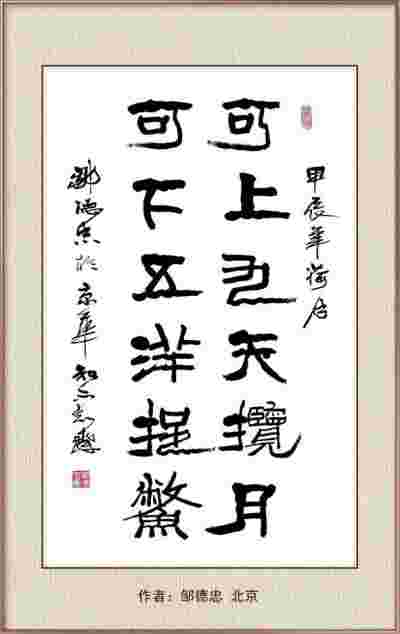 甲辰年荷
可上九天攬月
可下五洋捉鱉
鄒德忠於京華
作者：邹德忠 北京